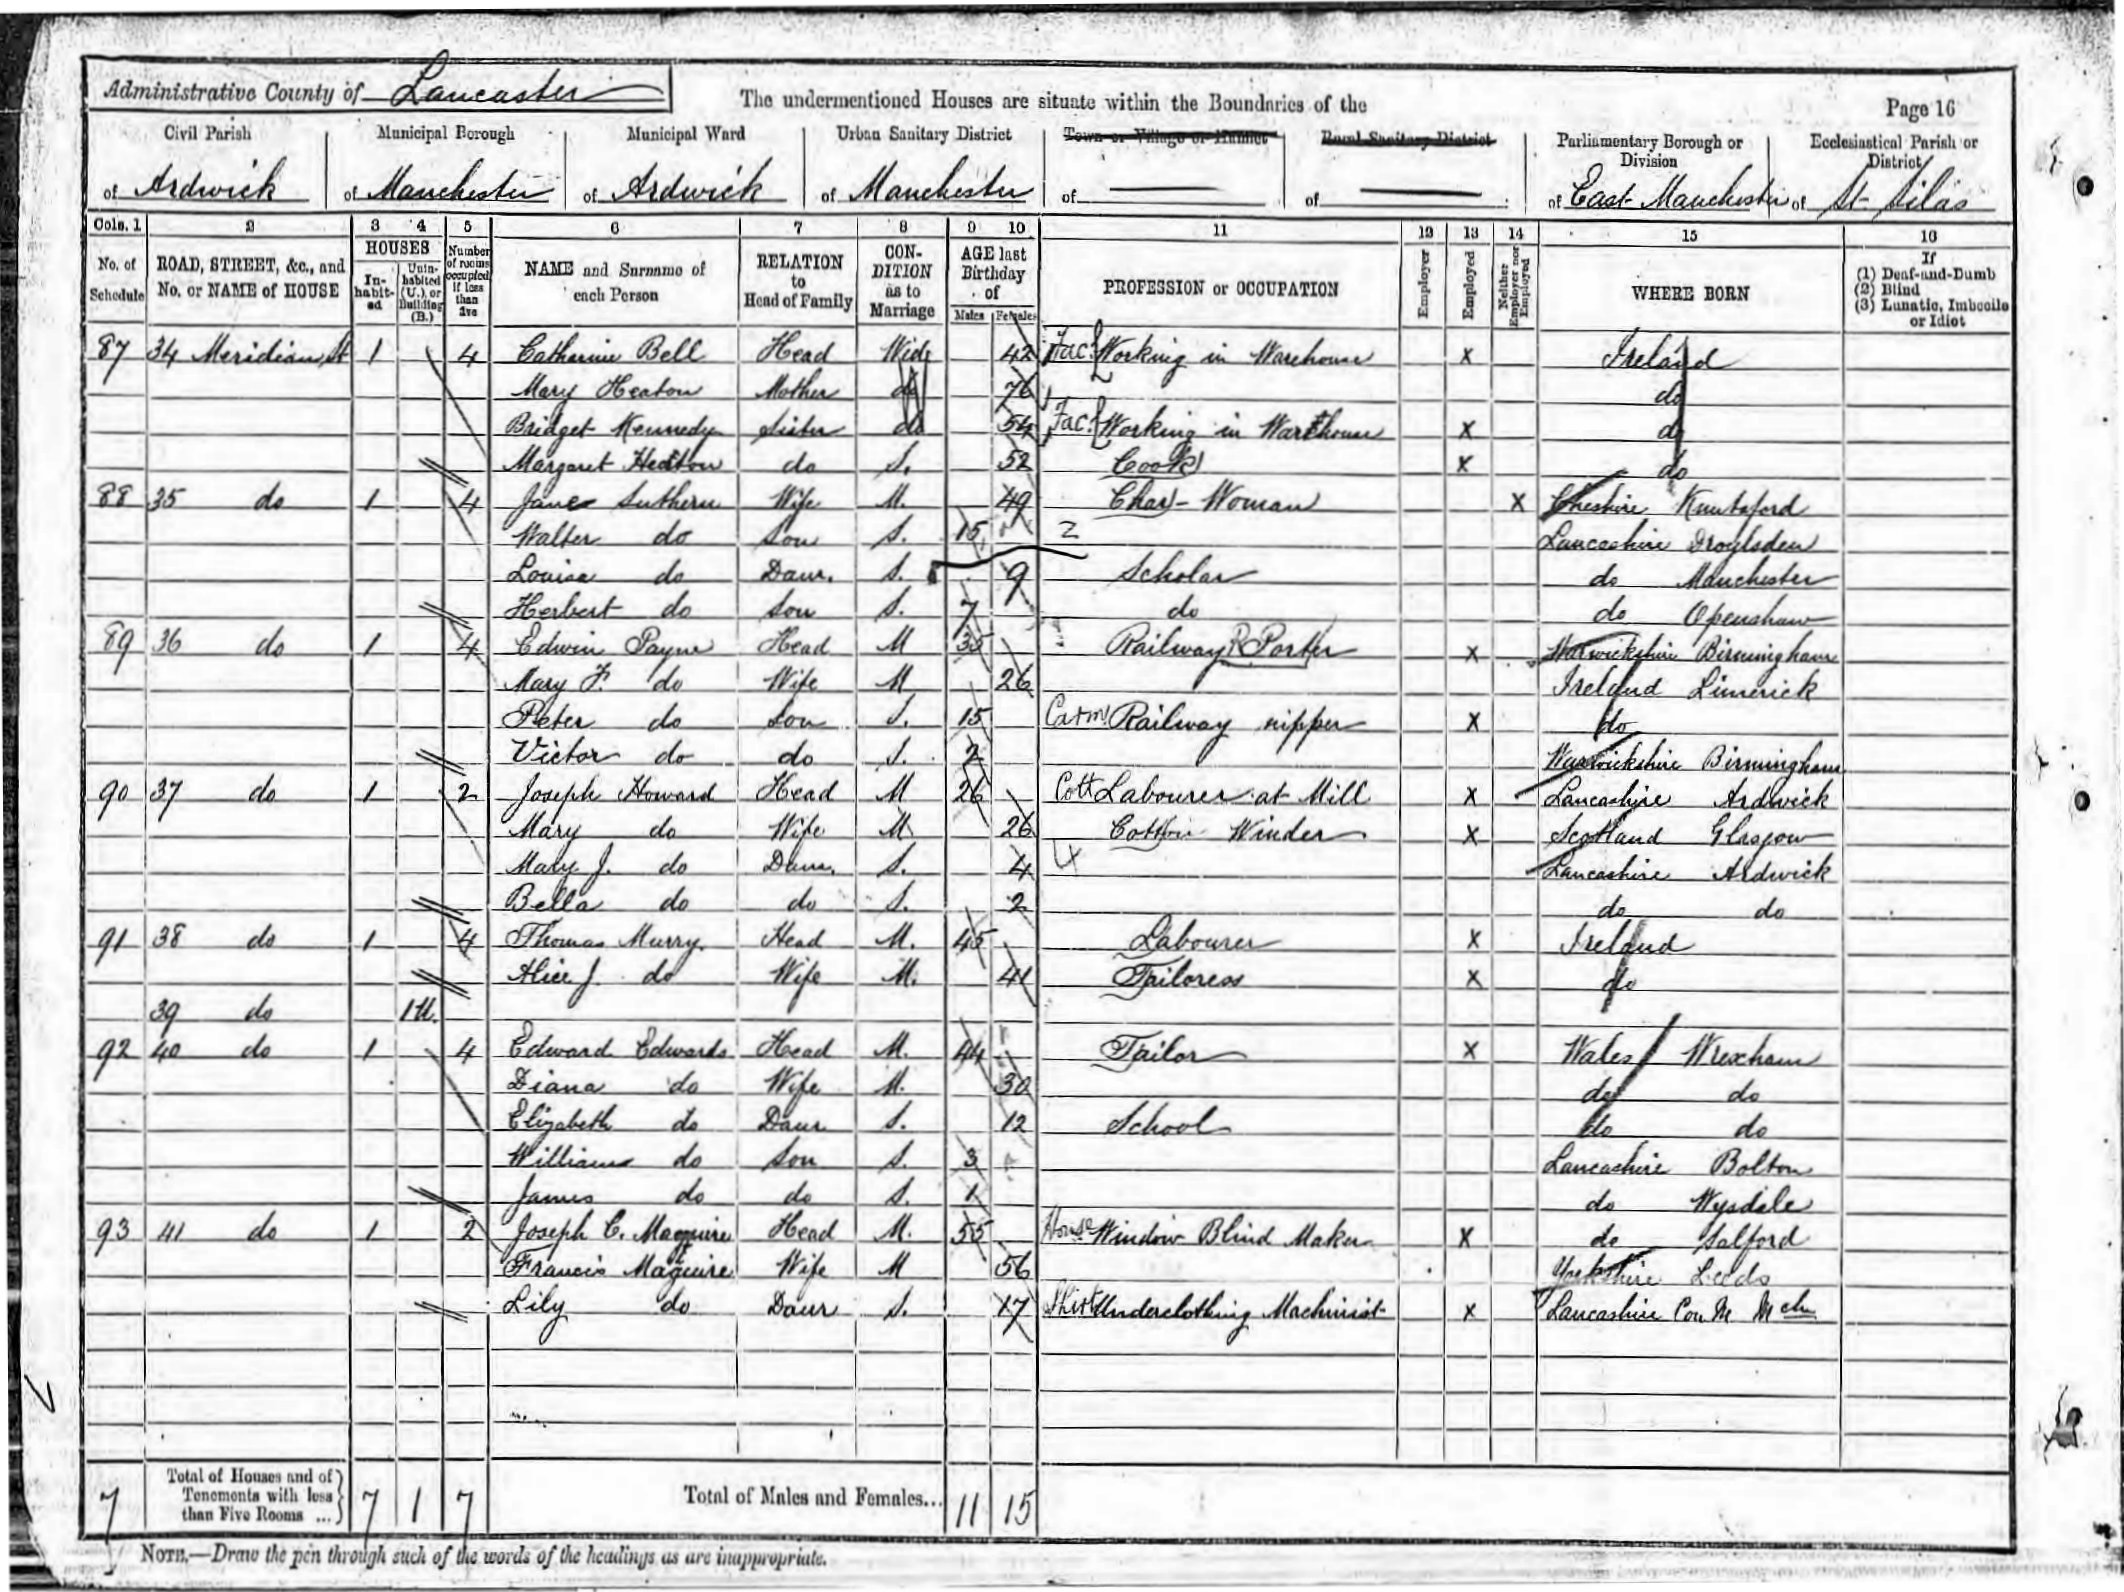 Administrative County of Lancaster
The undermentioned Houses are situate within the Boundaries of the
Page 16
Civil Parish Municipal Borough Municipal Ward Urban Sanitary District Town or Village or Hamlet Rural Sanitary District Parliamentary Borough or Division Ecclesiastical Parish or District
of Ardwick of Manchester of Ardwick of Manchester of of of East Manchester of St Silas
Cols. 1 2 3 4 5 6 7 8 9 10 11 12 13 14 15 16
No. of Schedule ROAD, STREET, &c., and No. or NAME of HOUSE HOUSES In-habit-ed Unin-habited (U.), or Building (B.) Number of rooms occupied if less than five NAME and Surname of each Person RELATION to Head of Family CON-DITION as to Marriage AGE last Birthday of Males Females PROFESSION or OCCUPATION Employer Employed Neither Employer nor Employed WHERE BORN If (1) Deaf-and-Dumb (2) Blind (3) Lunatic, Imbecile or Idiot
87 34 Meridian St 1 4 Catherine Bell Head Wid 42 Fac. Working in Warehouse X Ireland
Mary Heaton Mother do 76 do
Bridget Kennedy Sister do 54 Fac. Working in Warehouse X do
Margaret Heaton do S. 52 Cook X do
88 35 do 1 4 Jane Suthern Wife M. 49 Char-Woman X Cheshire Knutsford
Walter do Son S. 15 2 Lancashire Droylsden
Louisa do Daur. S. 9 Scholar do Manchester
Herbert do Son S. 7 do do Openshaw
89 36 do 1 4 Edwin Payne Head M 35 Railway R Porter X Warwickshire Birmingham
Mary F. do Wife M 26 Ireland Limerick
Peter do Son S. 15 Carm. Railway nipper X do
Victor do do S. 2 Warwickshire Birmingham
90 37 do 1 2 Joseph Howard Head M 26 Cott Labourer at Mill X Lancashire Ardwick
Mary do Wife M 26 Cotton Winder X Scotland Glasgow
Mary J. do Daur. S. 4 4 Lancashire Ardwick
Bella do do S. 2 do do
91 38 do 1 4 Thomas Murry Head M. 45 Labourer X Ireland
Alice J. do Wife M. 41 Tailoress X do
39 do 1U.
92 40 do 1 4 Edward Edwards Head M. 44 Tailor X Wales Wrexham
Diana do Wife M. 30 do do
Elizabeth do Daur S. 12 School do do
William do Son S. 3 Lancashire Bolton
James do do S. 1 do Wysdale
93 41 do 1 2 Joseph C. Maguire Head M. 55 House Window Blind Maker X do Salford
Francis Maguire Wife M 56 Yorkshire Leeds
Lily do Daur S. 17 Shirt Underclothing Machinist X Lancashire Con M Mch
7 Total of Houses and of Tenements with less than Five Rooms ... 7 1 7 Total of Males and Females... 11 15
NOTE.—Draw the pen through such of the words of the headings as are inappropriate.